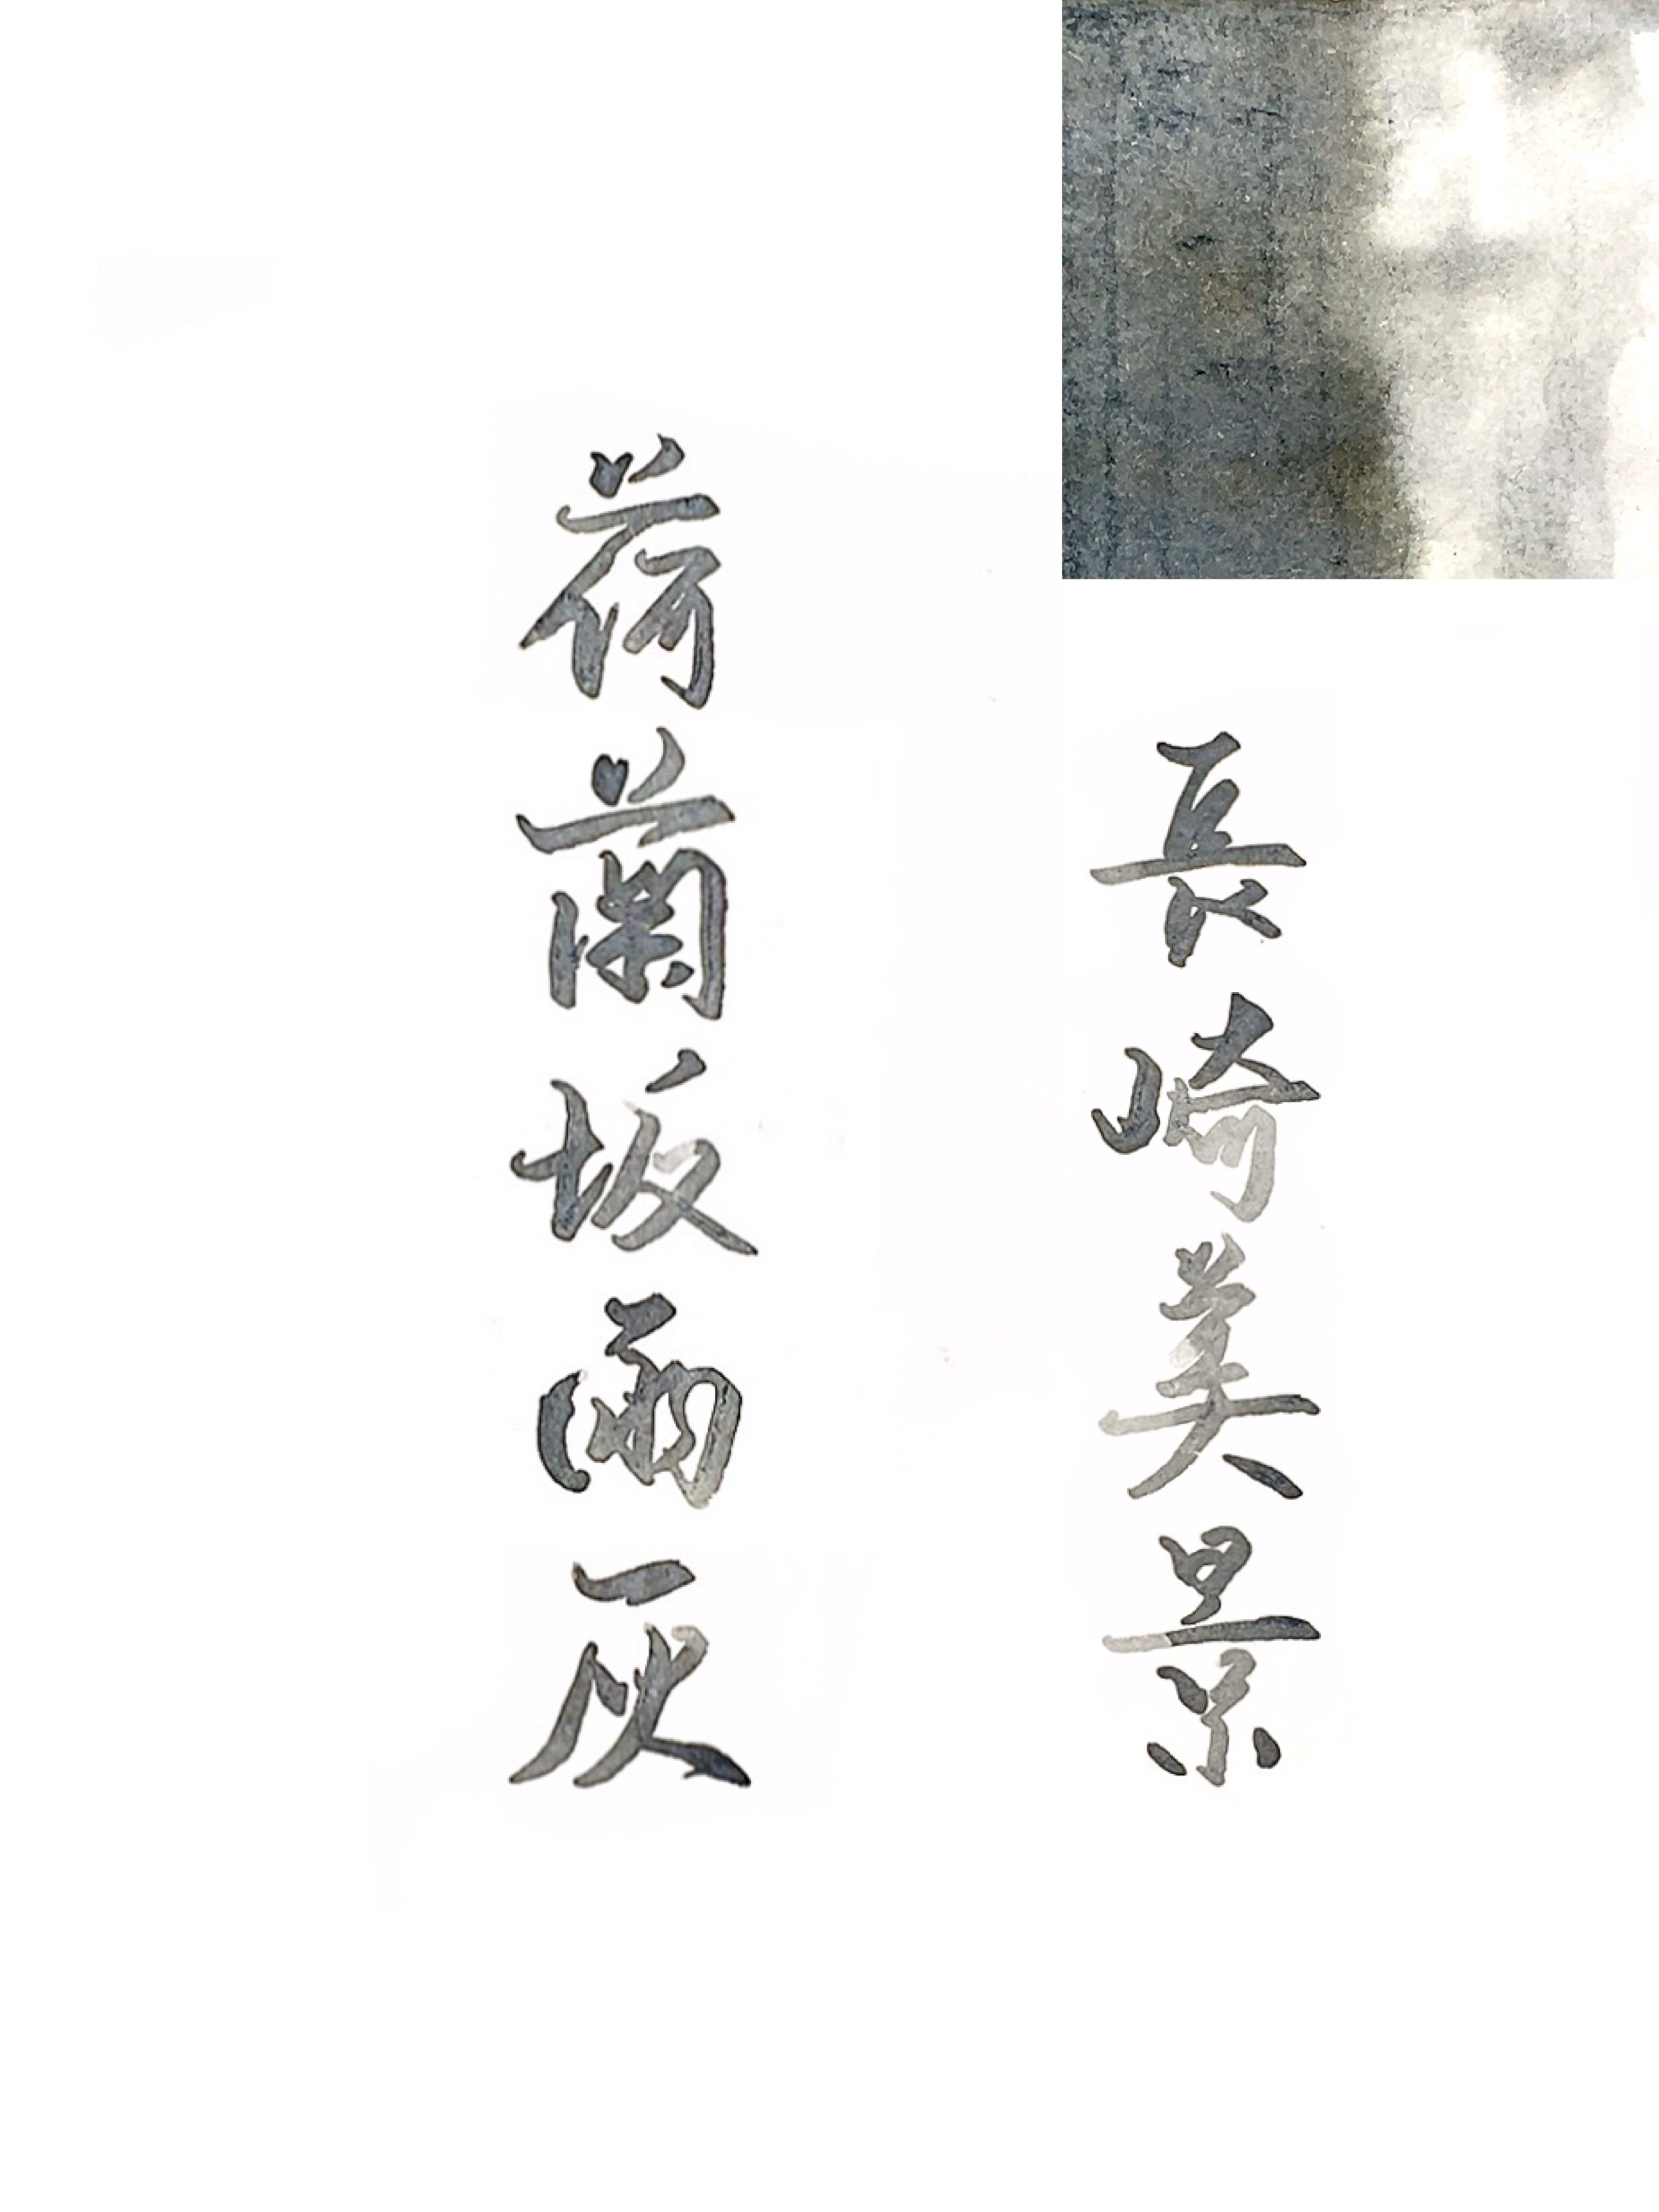 長崎美景
荷蘭坂雨灰